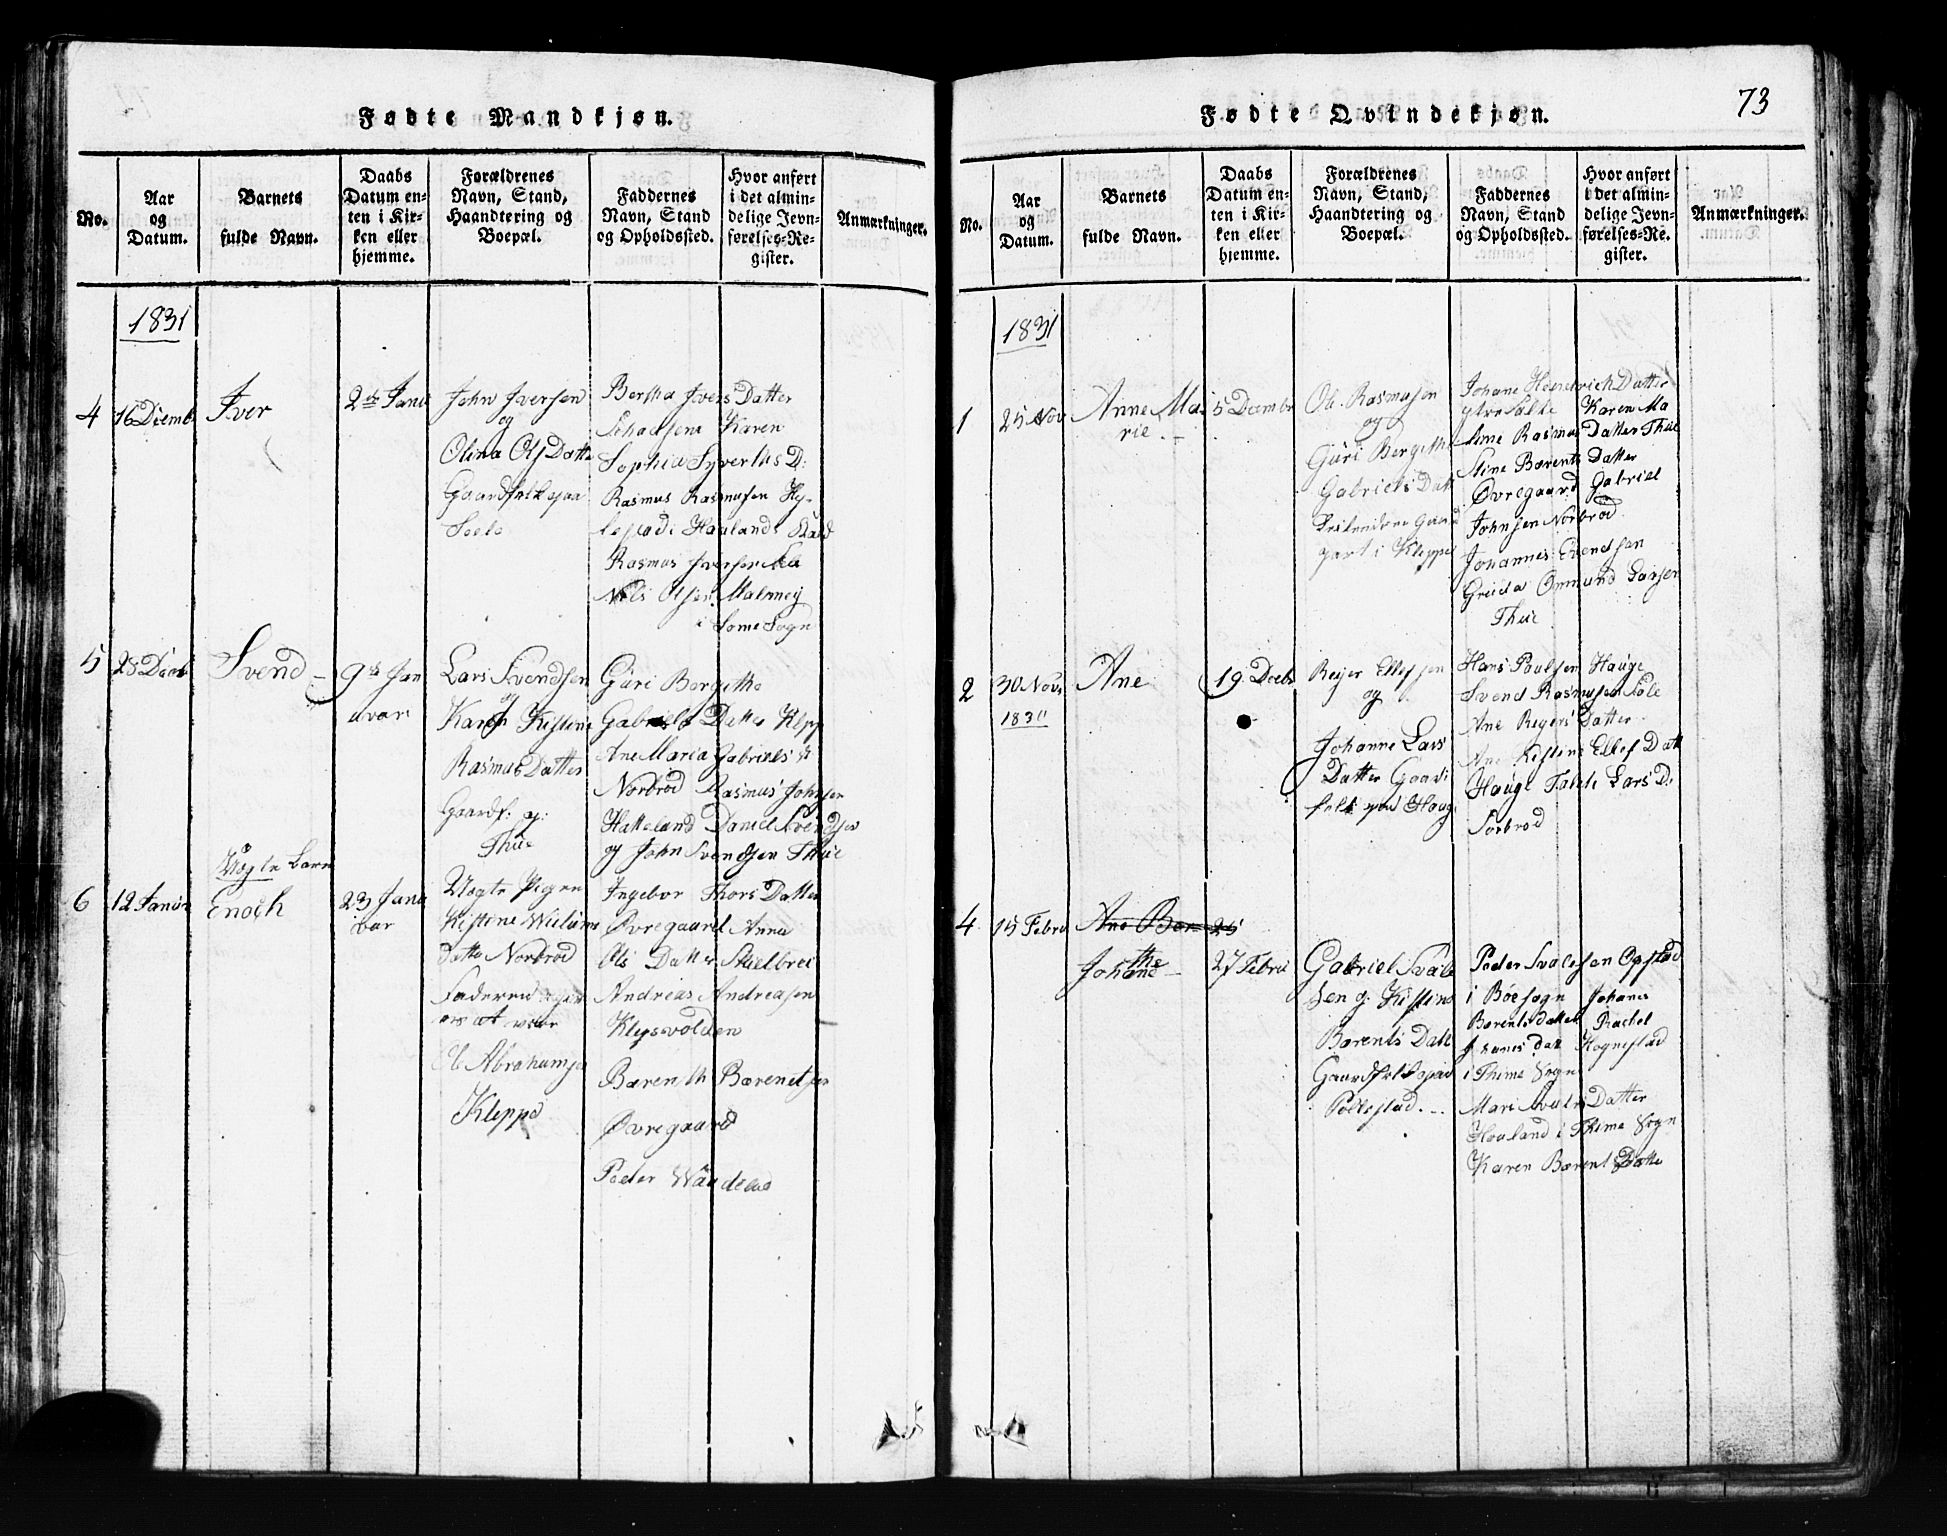 73
Fødte Mandkjøn.
No.
Aar
og
Datum.
Barnets
fulde Navn.
Daabs
Datum en-
ten i Kir-
ken eller
hjemme.
Forældrenes
Navn, Stand,
Haandtering og
Boepæl.
Faddernes
Navn, Stand
og Opholdssted.
Hvor anført
i det almin-
delige Jevn-
førelses-Re-
gister.
Anmærkninger.
1831
4
16 Dcemb
Iver
2de Janu
John Iversen
og
Olina Ols Datte
Gaardfolk paa
Seele
Bertha Ivers Datter
Karen
Sophia Syverths D:
Rasmus Rasmusen
Haaland
Rasmus Iversen
Niels Olsen Malmey
i Some Sogn
5
28 Dceb
Svend
9de Jan
uvar
Lars Svendsen
og
Karen Kistine
Rasmus Datter
Gaardf: og:
Thue
Gúri Bergitha
Gabriels Datter Klepp
Ane Maria Gabriels
Norbrød Rasmus Johnsen
Hatteland Daniel Svendsen
og John Svendsen Thue
Uægte Barn
6
12 Januar
Enoch
23 Janu
var
Uægte Pigen
Kistine Wiliams
datte Norbrød
Faderen
at være
Ol Abrahamsen
Kleppe
Ingebor Thors Datter
Øvregaard Anna
Ols Datter Skielbrei
Andreas Andreasen
Klepsvolden
Bærenth Bærentsen
Øvregaard
Peder
Fødte Qvindekjøn.
No.
Aar
og
Datum.
Barnets
fulde Navn.
Daabs
Datum en-
ten i Kir-
ken eller
hjemme.
Forældrenes
Navn, Stand,
Haandtering og
Boepæl.
Faddernes
Navn, Stand
og Opholdssted.
Hvor anført
i det almin-
delige Jevn-
førelses-Re-
gister.
Anmærkninger.
1831
1
25 Nov
Anne Ma
rie
5 Dcembr
Ole Rasmusen
og
Gúri Bergithe
Gabriels Datt
Gaard
part i Kleppe
Johane Hendrich Datter
Karen Ma
Rasmus Datter Thue
Stine Bærents Datter
Øvregaard Gabriel
Johnsen Norbrød
Johannes Evendsen
Omund Larsen
Thue
2
30 Novb
1830
Ane
19 Dcebr
Reyer Ellefsen
og
Johanne Lars
Datter Gaard
folk paa Haug
Hans Poulsen Hauge
Svend Rasmusen Sele
Ane Reyers Datter
Ane Kistine Ellef Datt
Hauge Lars D:
Sørbrød
4
15 Febru
Ane Ber 25
the
Johane
27 Febru
Gabriel Svale
sen og Kistine
Bærents Datt
Gaardfolk paa
Polestad
Peder Svalesen Opstad
i Bøe sogn Johanes
Bærentsdatter Rachel
datt Hognestad
i Thime Sogn
Mari Datter
Haaland i Thime Sogn
Karen Bærents Datte